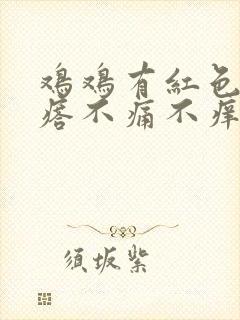 鸡鸡有紅色
痞不痛不痒
须坂紫